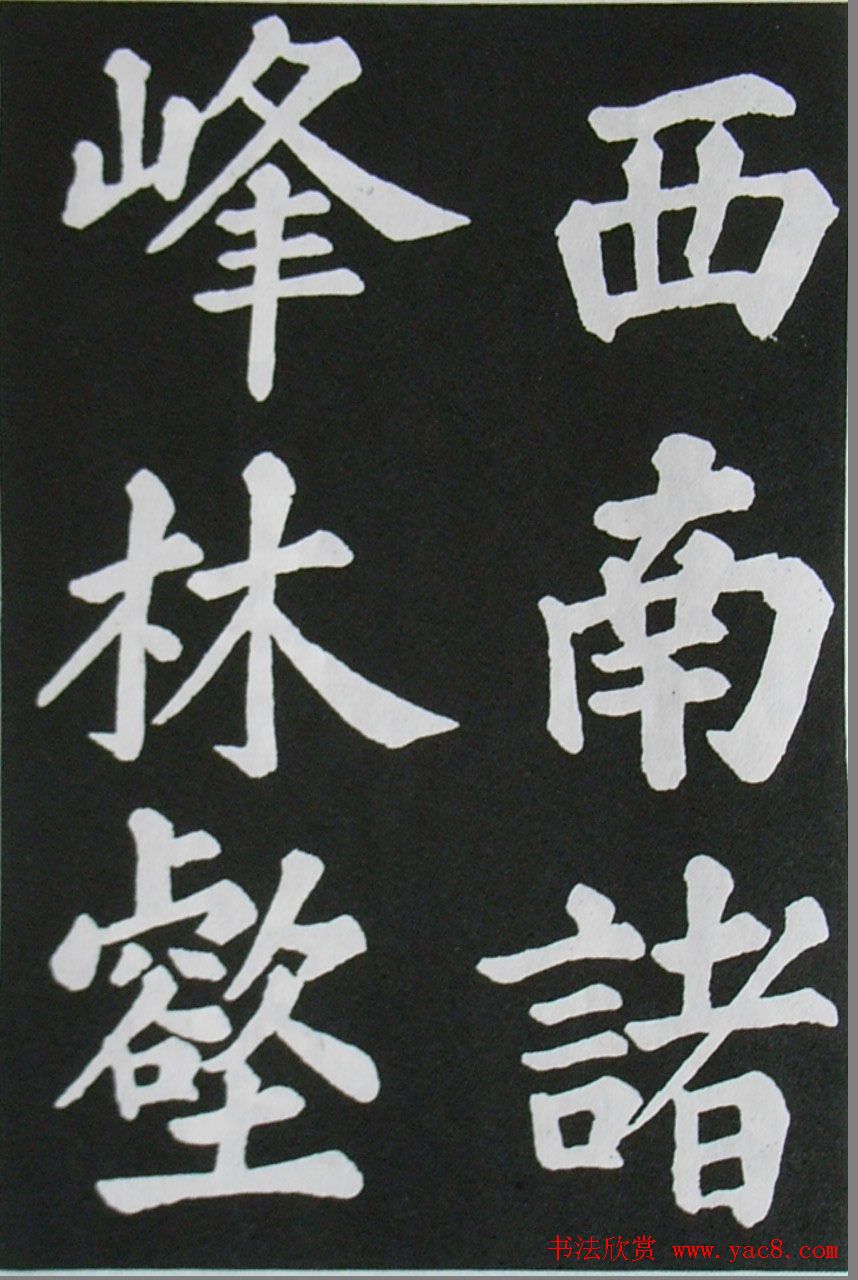 西南諸
峰林壑
书法欣赏 www.yac8.com